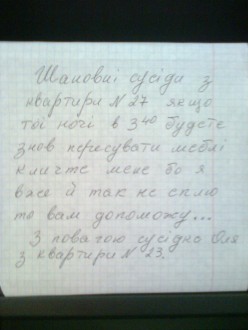 Шановні сусіди з
квартири №27 якщо
тої ночі в 3⁴⁰ будете
знов пересувати меблі
кличте мене бо я
вже й так не сплю
то вам допоможу...
З повагою сусідка Оля
з квартири №23.